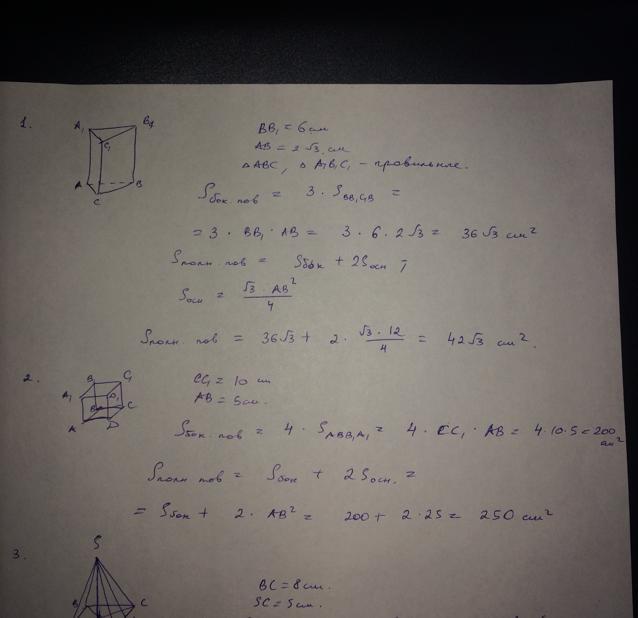 1.
A₁ B₁
C₁
A B
C
BB₁ = 6 см
AB = 2√3 см
△ABC, △A₁B₁C₁ – правильные.
Sбок. пов = 3 · SBB₁C₁B =
= 3 · BB₁ · AB = 3 · 6 · 2√3 = 36√3 см²
Sполн. пов = Sбок + 2Sосн ;
Sосн = √3 · AB² / 4
Sполн. пов = 36√3 + 2 · √3 · 12 / 4 = 42√3 см².
2.
B₁ C₁
A₁ D₁
B C
A D
CC₁ = 10 см
AB = 5 см.
Sбок. пов = 4 · SABB₁A₁ = 4 · CC₁ · AB = 4·10·5 = 200 см²
Sполн пов = Sбок + 2Sосн. =
= Sбок + 2 · AB² = 200 + 2 · 25 = 250 см²
3.
S
B C
BC = 8 см.
SC = 5 см.